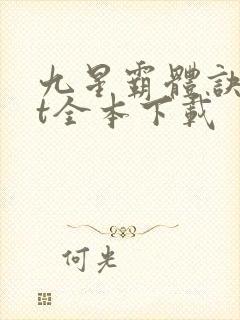 九星霸體訣
t全本下載
何光